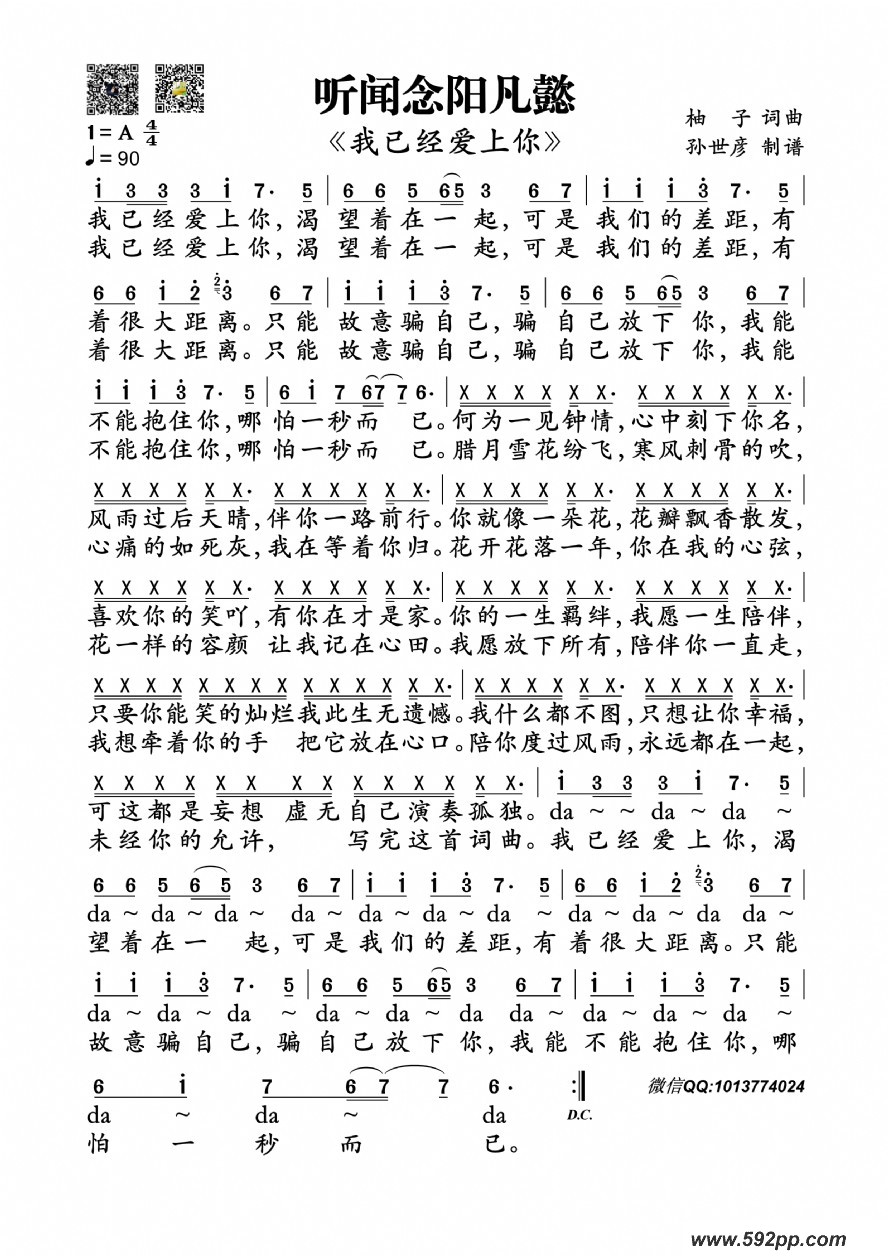 听闻念阳凡懿
《我已经爱上你》
柚 子 词曲
孙世彦 制谱
1= A 4/4
♩= 90
i 3 3 3 i 7· 5 | 6 6 5 6 5 3 6 7 | i i i 3 7· 5 |
我已经爱上你,渴望着在一起,可是我们的差距,有
我已经爱上你,渴望着在一起,可是我们的差距,有
6 6 i 2 2 3 6 7 | i i i 3 7· 5 | 6 6 5 6 5 3 6 7 |
着很大距离。只能故意骗自己,骗自己放下你,我能
着很大距离。只能故意骗自己,骗自己放下你,我能
i i i 3 7· 5 | 6 i 7 6 7 7 6· | X X X X X X· X X X X X X· |
不能抱住你,哪怕一秒而已。何为一见钟情,心中刻下你名,
不能抱住你,哪怕一秒而已。腊月雪花纷飞,寒风刺骨的吹,
X X X X X X· X X X X X X· | X X X X X X· X X X X X X· |
风雨过后天晴,伴你一路前行。你就像一朵花,花瓣飘香散发,
心痛的如死灰,我在等着你归。花开花落一年,你在我的心弦,
X X X X X X· X X X X X X· | X X X X X X· X X X X X X· |
喜欢你的笑吖,有你在才是家。你的一生羁绊,我愿一生陪伴,
花一样的容颜 让我记在心田。我愿放下所有,陪伴你一直走,
X X X X X X X X X X X X X X X· | X X X X X X· X X X X X X· |
只要你能笑的灿烂我此生无遗憾。我什么都不图,只想让你幸福,
我想牵着你的手 把它放在心口。陪你度过风雨,永远都在一起,
X X X X X X X X X X X X X X· | i 3 3 3 i 7· 5 |
可这都是妄想 虚无自己演奏孤独。da ~ ~ da ~ da ~
未经你的允许, 写完这首词曲。我已经爱上你,渴
6 6 5 6 5 3 6 7 | i i i 3 7· 5 | 6 6 i 2 2 3 6 7 |
da ~ da ~ da ~ da ~ da ~ da ~ da ~ da ~ da ~ da ~ da ~
望着在一 起,可是我们的差距,有着很大距离。只能
i i i 3 7· 5 | 6 6 5 6 5 3 6 7 | i i i 3 7· 5 |
da ~ da ~ da ~ da ~ da ~ da da ~ da ~ da ~ da ~
故意骗自己,骗自己放下你,我能不能抱住你,哪
6 i 7 6 7 7 6· :‖ 微信QQ:1013774024
da ~ da ~ da D.C.
怕一秒而已。
www.592pp.com